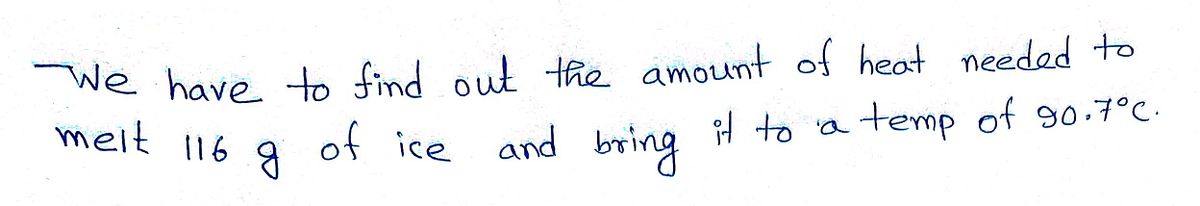 We have to find out the amount of heat needed to
melt 116 g of ice and bring it to a temp of 90.7°C.